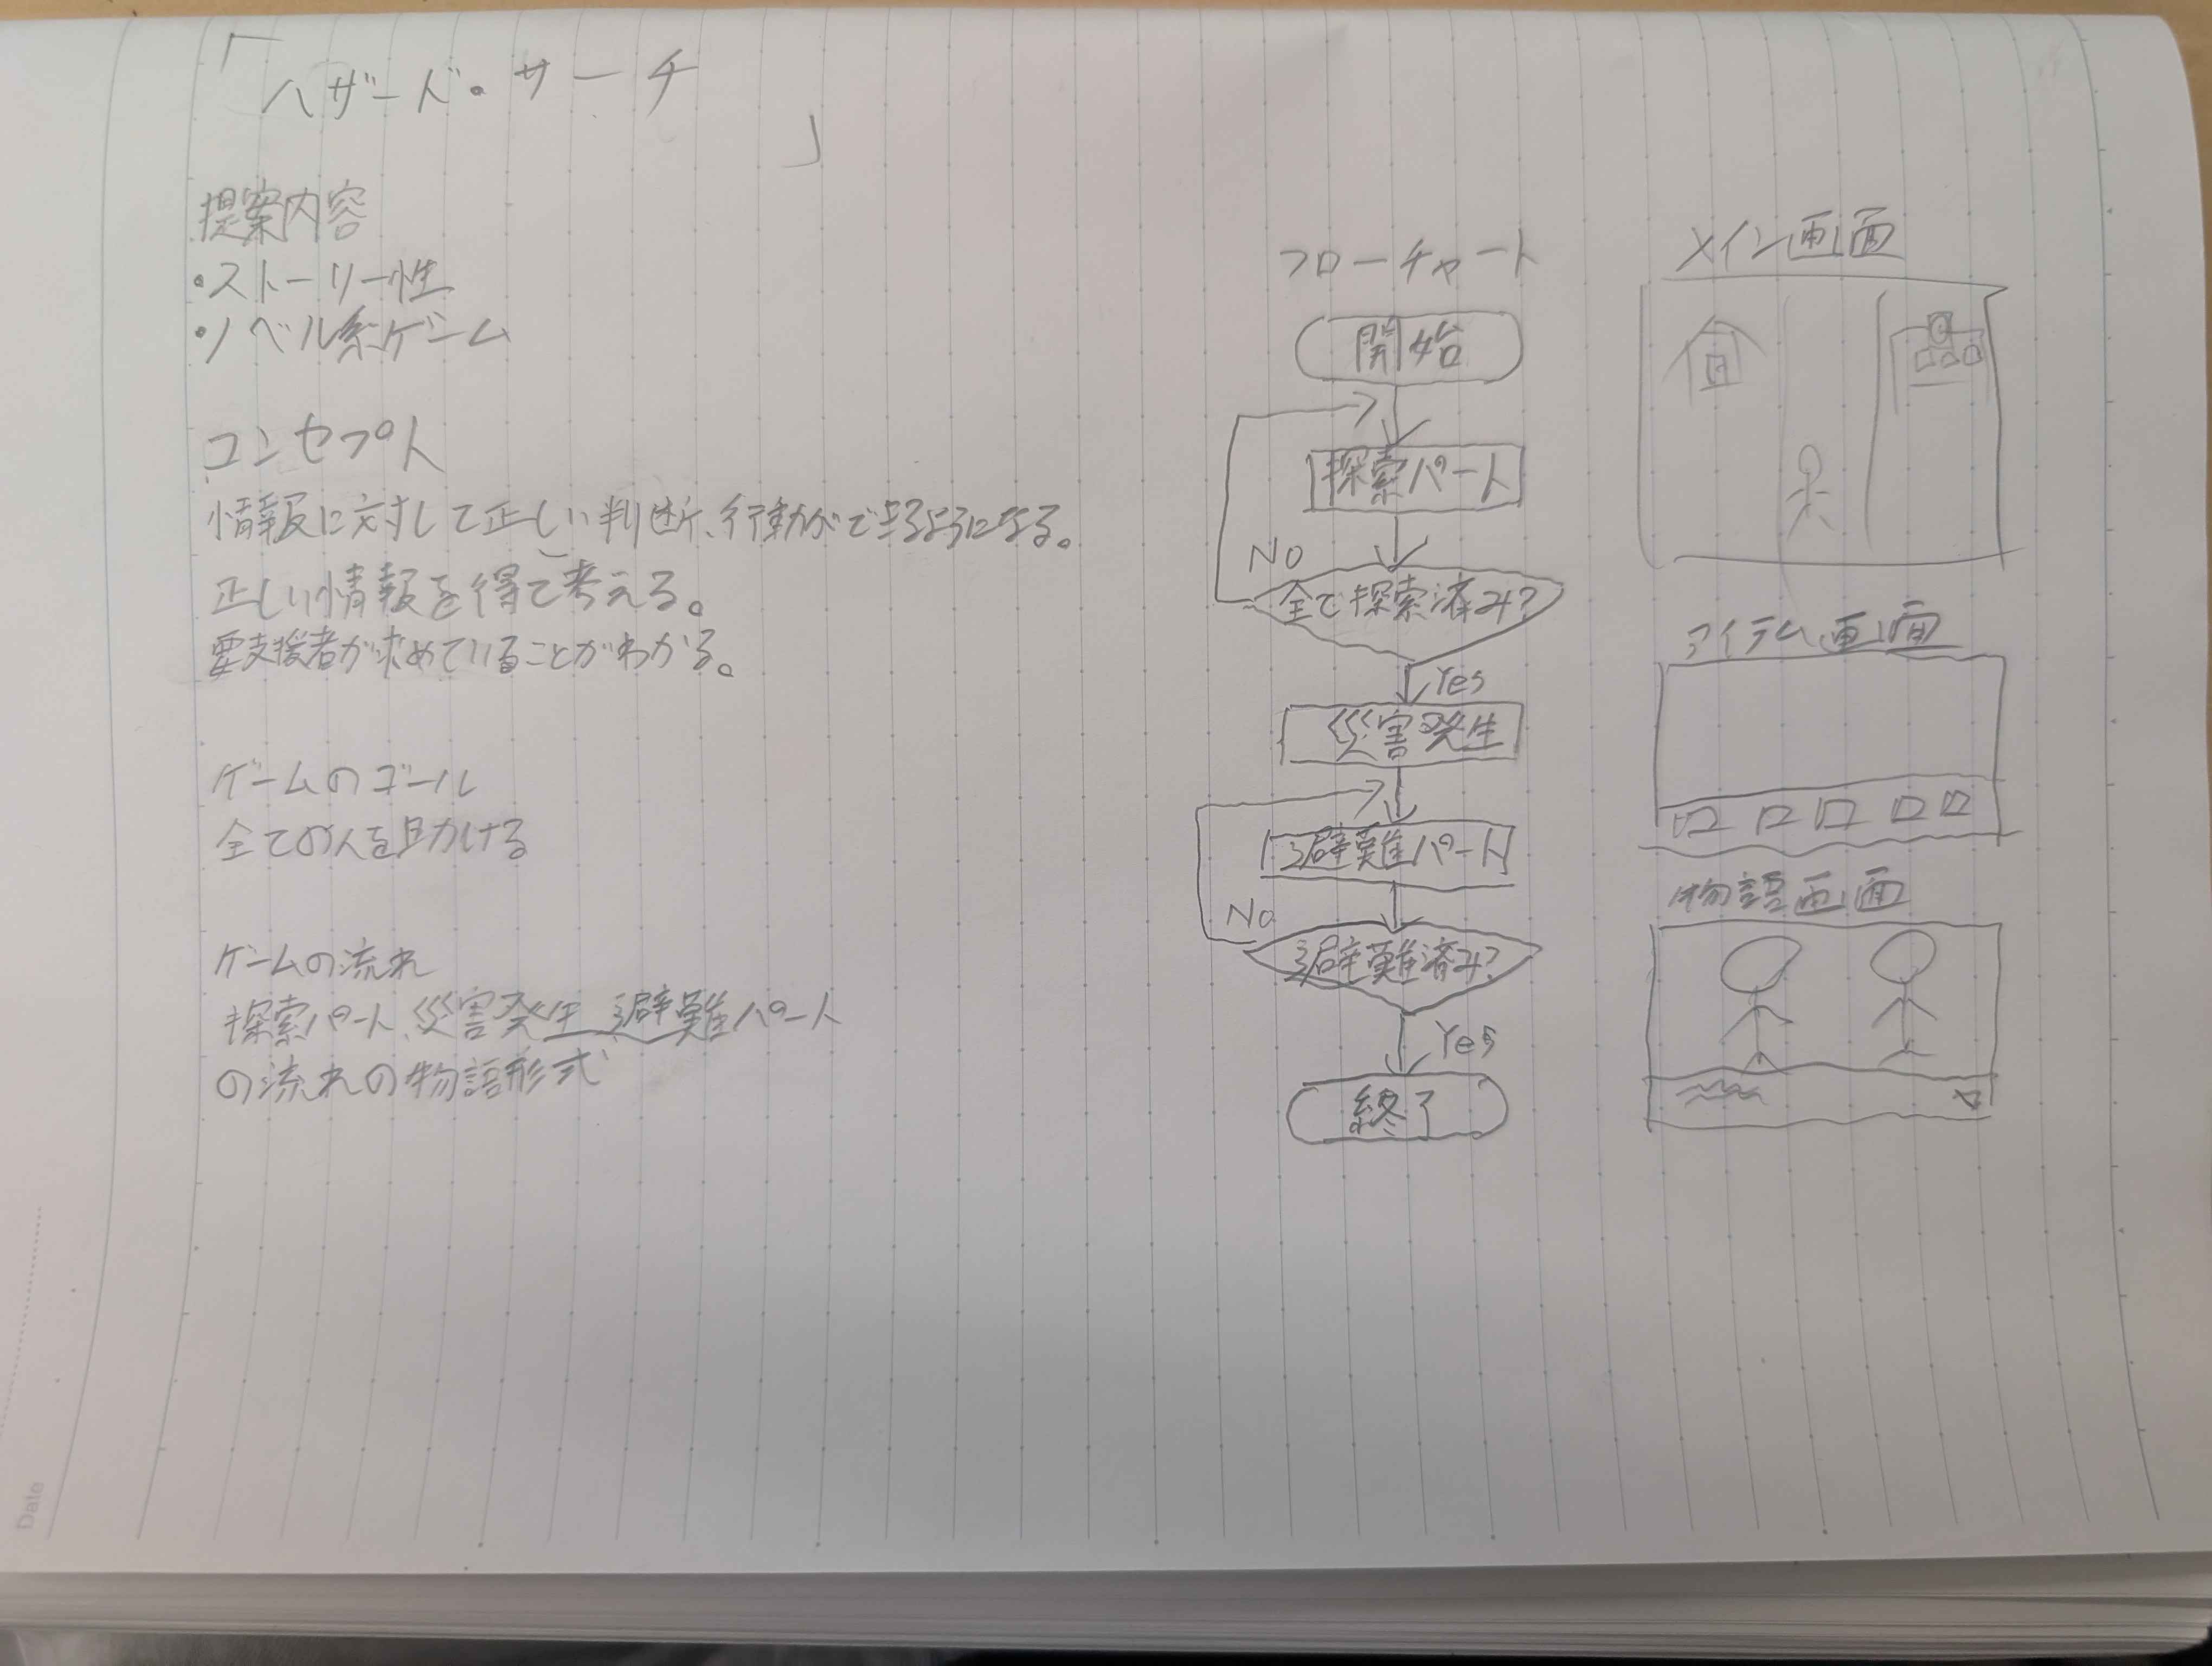 「ハザード・サーチ」
提案内容
・ストーリー性
・ノベル系ゲーム
コンセプト
情報に対して正しい判断、行動ができるようになる。
正しい情報を得て考える。
要支援者が求めていることがわかる。
ゲームのゴール
全ての人を助ける
ゲームの流れ
探索パート、災害発生、避難パート
の流れの物語形式
フローチャート
開始
探索パート
No
全て探索済み?
Yes
災害発生
避難パート
No
避難済み?
Yes
終了
メイン画面
アイテム画面
物語画面
Date